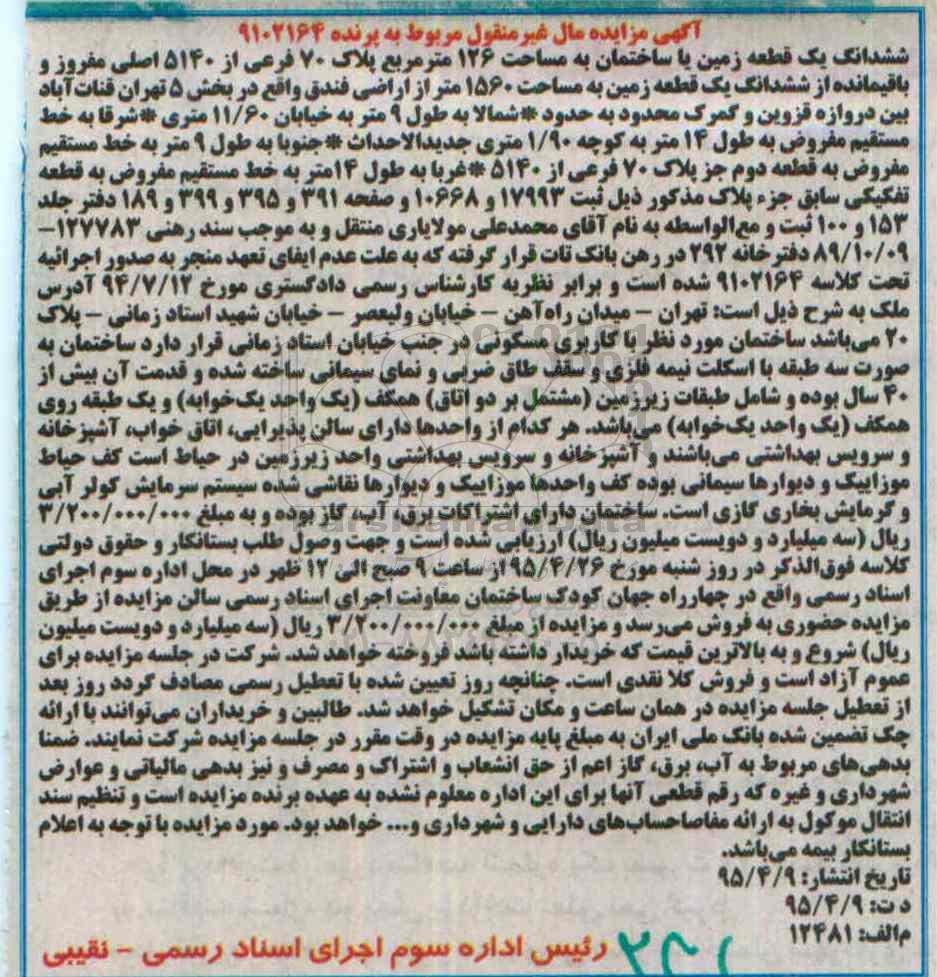 آگهی مزایده مال غیر منقول مربوط به پرنده ۹۱۰۲۱۶۴
ششدانگ یک قطعه زمین با ساختمان به مساحت ۱۲۶ مترمربع پلاک ۷۰ فرعی از ۵۱۴۰ اصلی مفروز و
باقیمانده از ششدانگ یک قطعه زمین به مساحت ۱۵۶۰ متر از اراضی فندق واقع در بخش ۵ تهران قنات‌آباد
بین دروازه قزوین و گمرک محدود به حدود *شمالا به طول ۹ متر به خیابان ۱۱/۶۰ متری *شرقا به خط
مستقیم مفروض به طول ۱۴ متر به کوچه ۱/۹۰ متری جدیدالاحداث *جنوبا به طول ۹ متر به خط مستقیم
مفروض به قطعه دوم جز پلاک ۷۰ فرعی از ۵۱۴۰ *غربا به طول ۱۴متر به خط مستقیم مفروض به قطعه
تفکیکی سابق جزء پلاک مذکور ذیل ثبت ۱۷۹۹۳ و ۱۰۶۶۸ و صفحه ۳۹۱ و ۳۹۵ و ۳۹۹ و ۱۸۹ دفتر جلد
۱۵۳ و ۱۰۰ ثبت و مع‌الواسطه به نام آقای محمدعلی مولایاری منتقل و به موجب سند رهنی ۱۲۷۷۸۳-
۸۹/۱۰/۰۹ دفترخانه ۲۹۲ در رهن بانک تات قرار گرفته که به علت عدم ایفای تعهد منجر به صدور اجرائیه
تحت کلاسه ۹۱۰۲۱۶۴ شده است و برابر نظریه کارشناس رسمی دادگستری مورخ ۹۴/۷/۱۲ آدرس
ملک به شرح ذیل است: تهران – میدان راه‌آهن – خیابان ولیعصر – خیابان شهید استاد زمانی – پلاک
۲۰ می‌باشد ساختمان مورد نظر با کاربری مسکونی در جنب خیابان استاد زمانی قرار دارد ساختمان به
صورت سه طبقه با اسکلت نیمه فلزی و سقف طاق ضربی و نمای سیمانی ساخته شده و قدمت آن بیش از
۴۰ سال بوده و شامل طبقات زیرزمین (مشتمل بر دو اتاق) همکف (یک واحد یک‌خوابه) و یک طبقه روی
همکف (یک واحد یک‌خوابه) می‌باشد. هر کدام از واحدها دارای سالن پذیرایی، اتاق خواب، آشپزخانه
و سرویس بهداشتی می‌باشند و آشپزخانه و سرویس بهداشتی واحد زیرزمین در حیاط است کف حیاط
موزاییک و دیوارها سیمانی بوده کف واحدها موزاییک و دیوارها نقاشی شده سیستم سرمایش کولر آبی
و گرمایش بخاری گازی است. ساختمان دارای اشتراکات برق، آب، گاز بوده و به مبلغ ۳/۲۰۰/۰۰۰/۰۰۰
ریال (سه میلیارد و دویست میلیون ریال) ارزیابی شده است و جهت وصول طلب بستانکار و حقوق دولتی
کلاسه فوق‌الذکر در روز شنبه مورخ ۹۵/۴/۲۶ از ساعت ۹ صبح الی ۱۲ ظهر در محل اداره سوم اجرای
اسناد رسمی واقع در چهارراه جهان کودک ساختمان معاونت اجرای اسناد رسمی سالن مزایده از طریق
مزایده حضوری به فروش می‌رسد و مزایده از مبلغ ۳/۲۰۰/۰۰۰/۰۰۰ ریال (سه میلیارد و دویست میلیون
ریال) شروع و به بالاترین قیمت که خریدار داشته باشد فروخته خواهد شد. شرکت در جلسه مزایده برای
عموم آزاد است و فروش کلا نقدی است. چنانچه روز تعیین شده با تعطیل رسمی مصادف گردد روز بعد
از تعطیل جلسه مزایده در همان ساعت و مکان تشکیل خواهد شد. طالبین و خریداران می‌توانند با ارائه
چک تضمین شده بانک ملی ایران به مبلغ پایه مزایده در وقت مقرر در جلسه مزایده شرکت نمایند. ضمنا
بدهی‌های مربوط به آب، برق، گاز اعم از حق انشعاب و اشتراک و مصرف و نیز بدهی مالیاتی و عوارض
شهرداری و غیره که رقم قطعی آنها برای این اداره معلوم نشده به عهده برنده مزایده است و تنظیم سند
انتقال موکول به ارائه مفاصاحساب‌های دارایی و شهرداری و... خواهد بود. مورد مزایده با توجه به اعلام
بستانکار بیمه می‌باشد.
تاریخ انتشار: ۹۵/۴/۹
د ت: ۹۵/۴/۹
م‌الف: ۱۲۴۸۱
رئیس اداره سوم اجرای اسناد رسمی – نقیبی